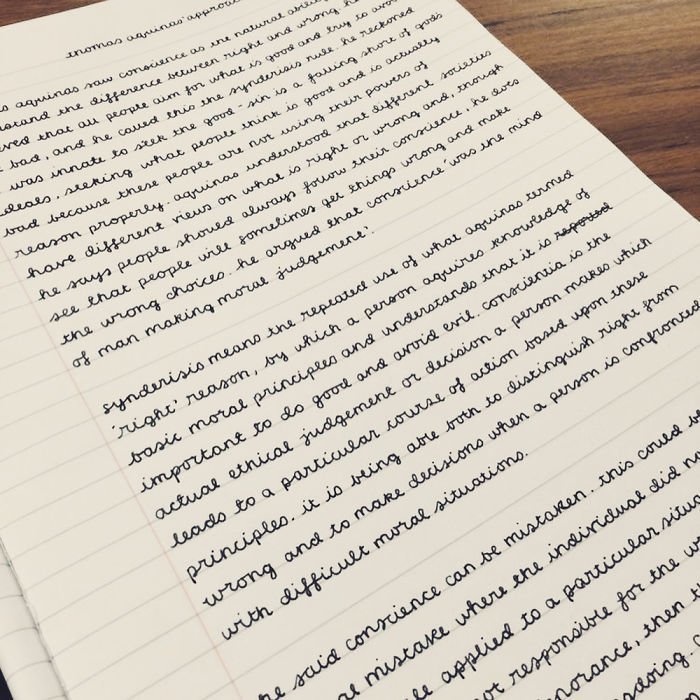 thomas aquinas' approa
s aquinas saw conscience as the natural abili
stand the difference between right and wrong. he
eved that all people aim for what is good and try to avoi
bad, and he called this the synderisis rule. he reckoned
was innate to seek the good - sin is a falling short of gods
ideals, seeking what people think is good and is actually
bad because these people are not using their powers of
reason properly. aquinas understood that different societies
have different views on what is right or wrong and, though
he says people should always follow their conscience, he does
see that people will sometimes get things wrong and make
the wrong choices. he argued that conscience 'was the mind
of man making moral judgement'.
synderisis means the repeated use of what aquinas termed
'right' reason, by which a person aquires knowledge of
basic moral principles and understands that it is reported
important to do good and avoid evil. conscientia is the
actual ethical judgement or decision a person makes which
leads to a particular course of action based upon these
principles. it is being able both to distinguish right from
wrong and to make decisions when a person is confronted
with difficult moral situations.
he said conscience can be mistaken. this could b
al mistake where the individual did n
le applied to a particular situa
not responsible for the w
norance, then t
doing.